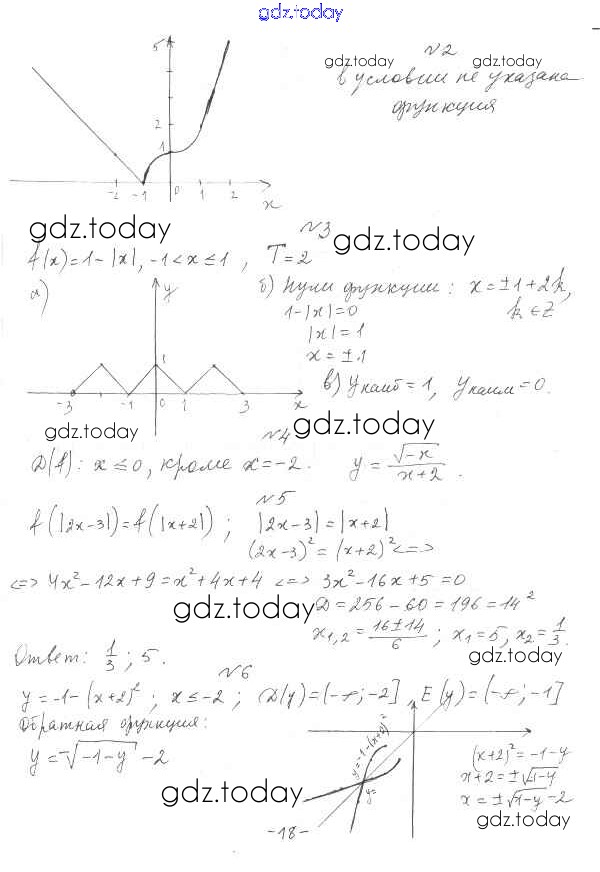 gdz.today
5
2
1
-2 -1 0 1 2
x
№2
gdz.today gdz.today
в условии не указана
функция
gdz.today
№3
gdz.today
f(x)=1-|x|, -1<x≤1, T=2
а)
y
1
-3 -1 0 1 3
x
б) Нули функции: x=±1+2k,
1-|x|=0 k∈Z
|x|=1
x=±1
в) yнаиб=1, yнаим=0.
gdz.today gdz.today
№4
D(f): x≤0, кроме x=-2. y=√-x/(x+2).
№5
f(|2x-3|)=f(|x+2|); |2x-3|=|x+2|
(2x-3)²=(x+2)²<=>
<=> 4x²-12x+9=x²+4x+4 <=> 3x²-16x+5=0
gdz.today
D=256-60=196=14²
x1,2=(16±14)/6; x1=5, x2=1/3.
gdz.today
Ответ: 1/3; 5.
№6
y=-1-(x+2)²; x≤-2; D(y)=(-∞;-2], E(y)=(-∞;-1]
Обратная функция:
y=-√-1-y-2
y=-1-(x+2)²
y=
(x+2)²=-1-y
x+2=±√-1-y
x=±√-1-y-2
gdz.today
gdz.today
-18-